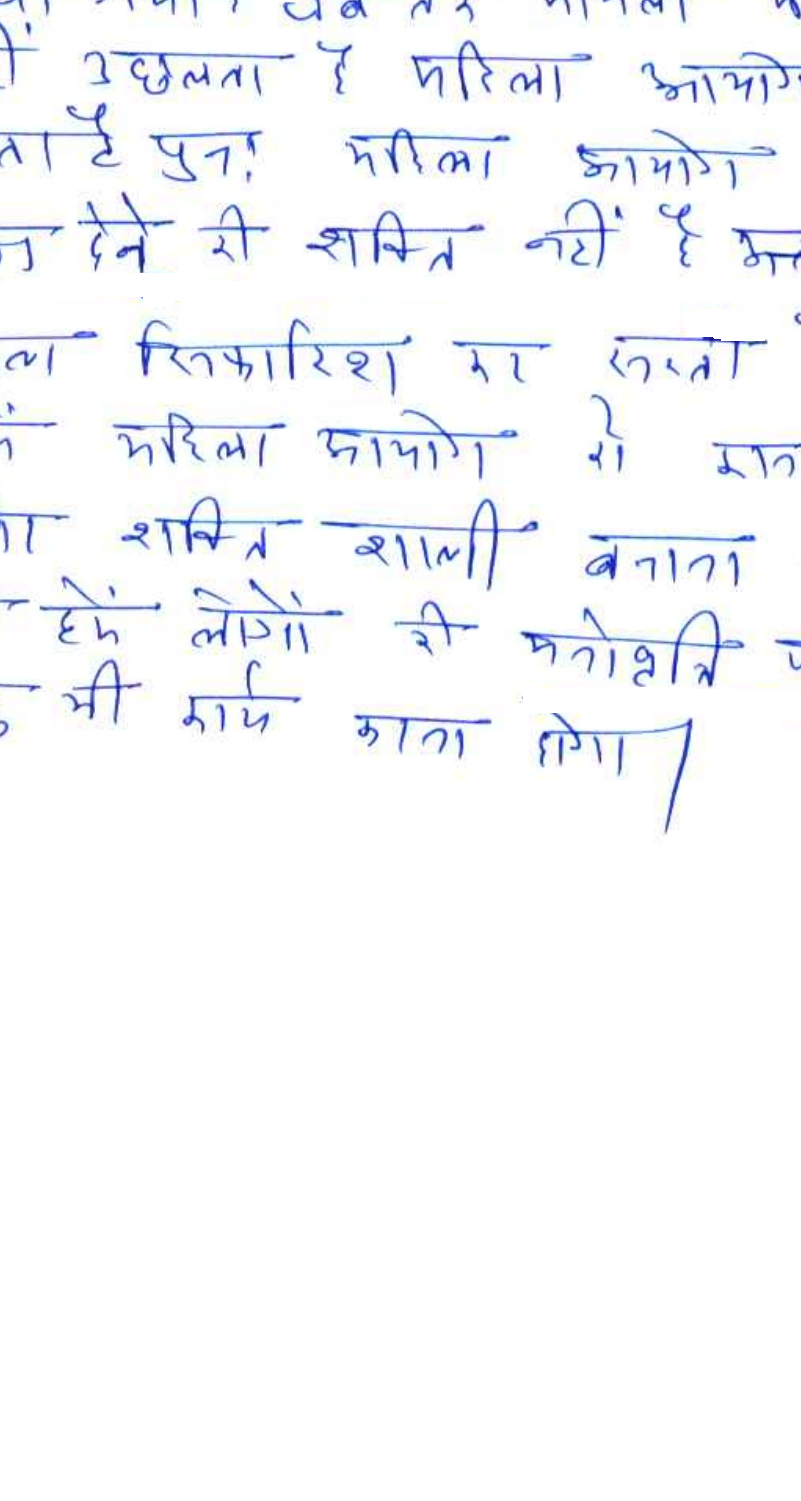 तक मामला
उछलता है महिला आयोग
ता है पुन: महिला आयोग
देने की शक्ति नहीं है
सिफारिश कर सकता
महिला आयोग को
शक्ति शाली बनाना
हमें लोगों की मनोवृत्ति
भी कार्य करना होगा।